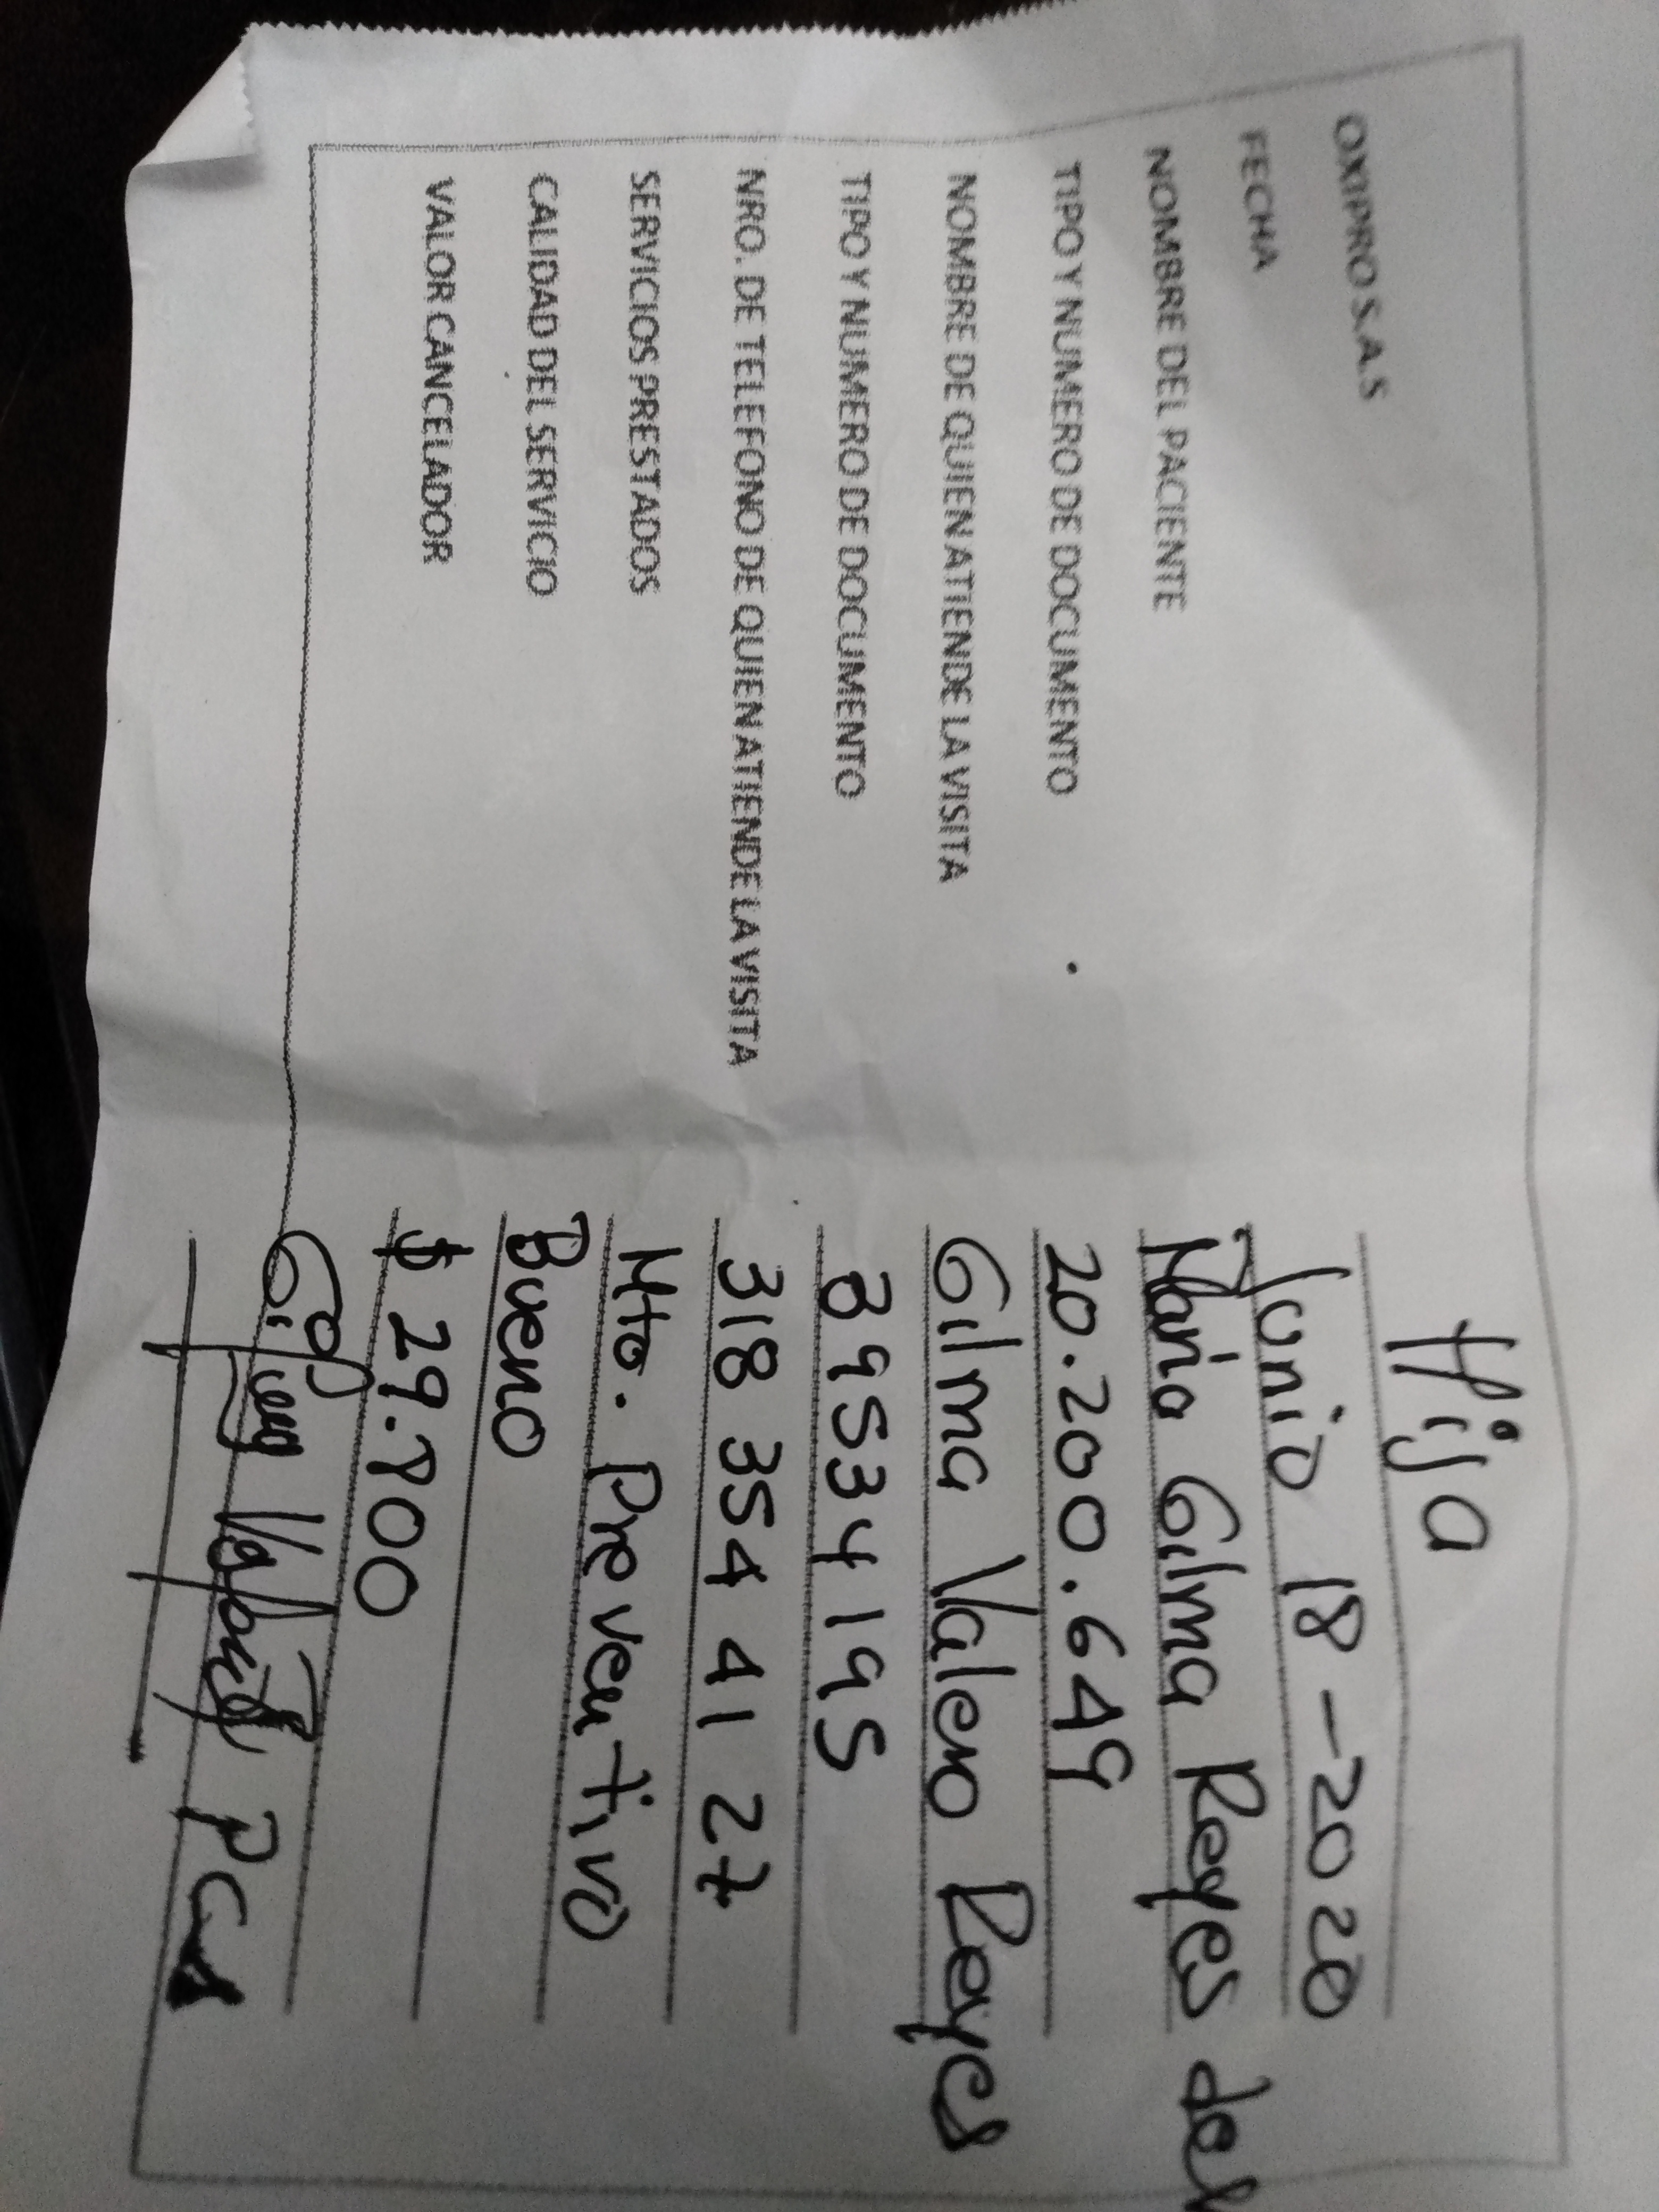 Hija
OXIPRO S.A.S
FECHA Junio 18 - 2020
NOMBRE DEL PACIENTE Maria Gilma Reyes de
TIPO Y NUMERO DE DOCUMENTO 20.200.649
NOMBRE DE QUIEN ATIENDE LA VISITA Gilma Valero Reyes
TIPO Y NUMERO DE DOCUMENTO 39534195
NRO. DE TELEFONO DE QUIEN ATIENDE LA VISITA 318 354 41 27
SERVICIOS PRESTADOS Mto. Preventivo
CALIDAD DEL SERVICIO Bueno
VALOR CANCELADOR $ 29.800